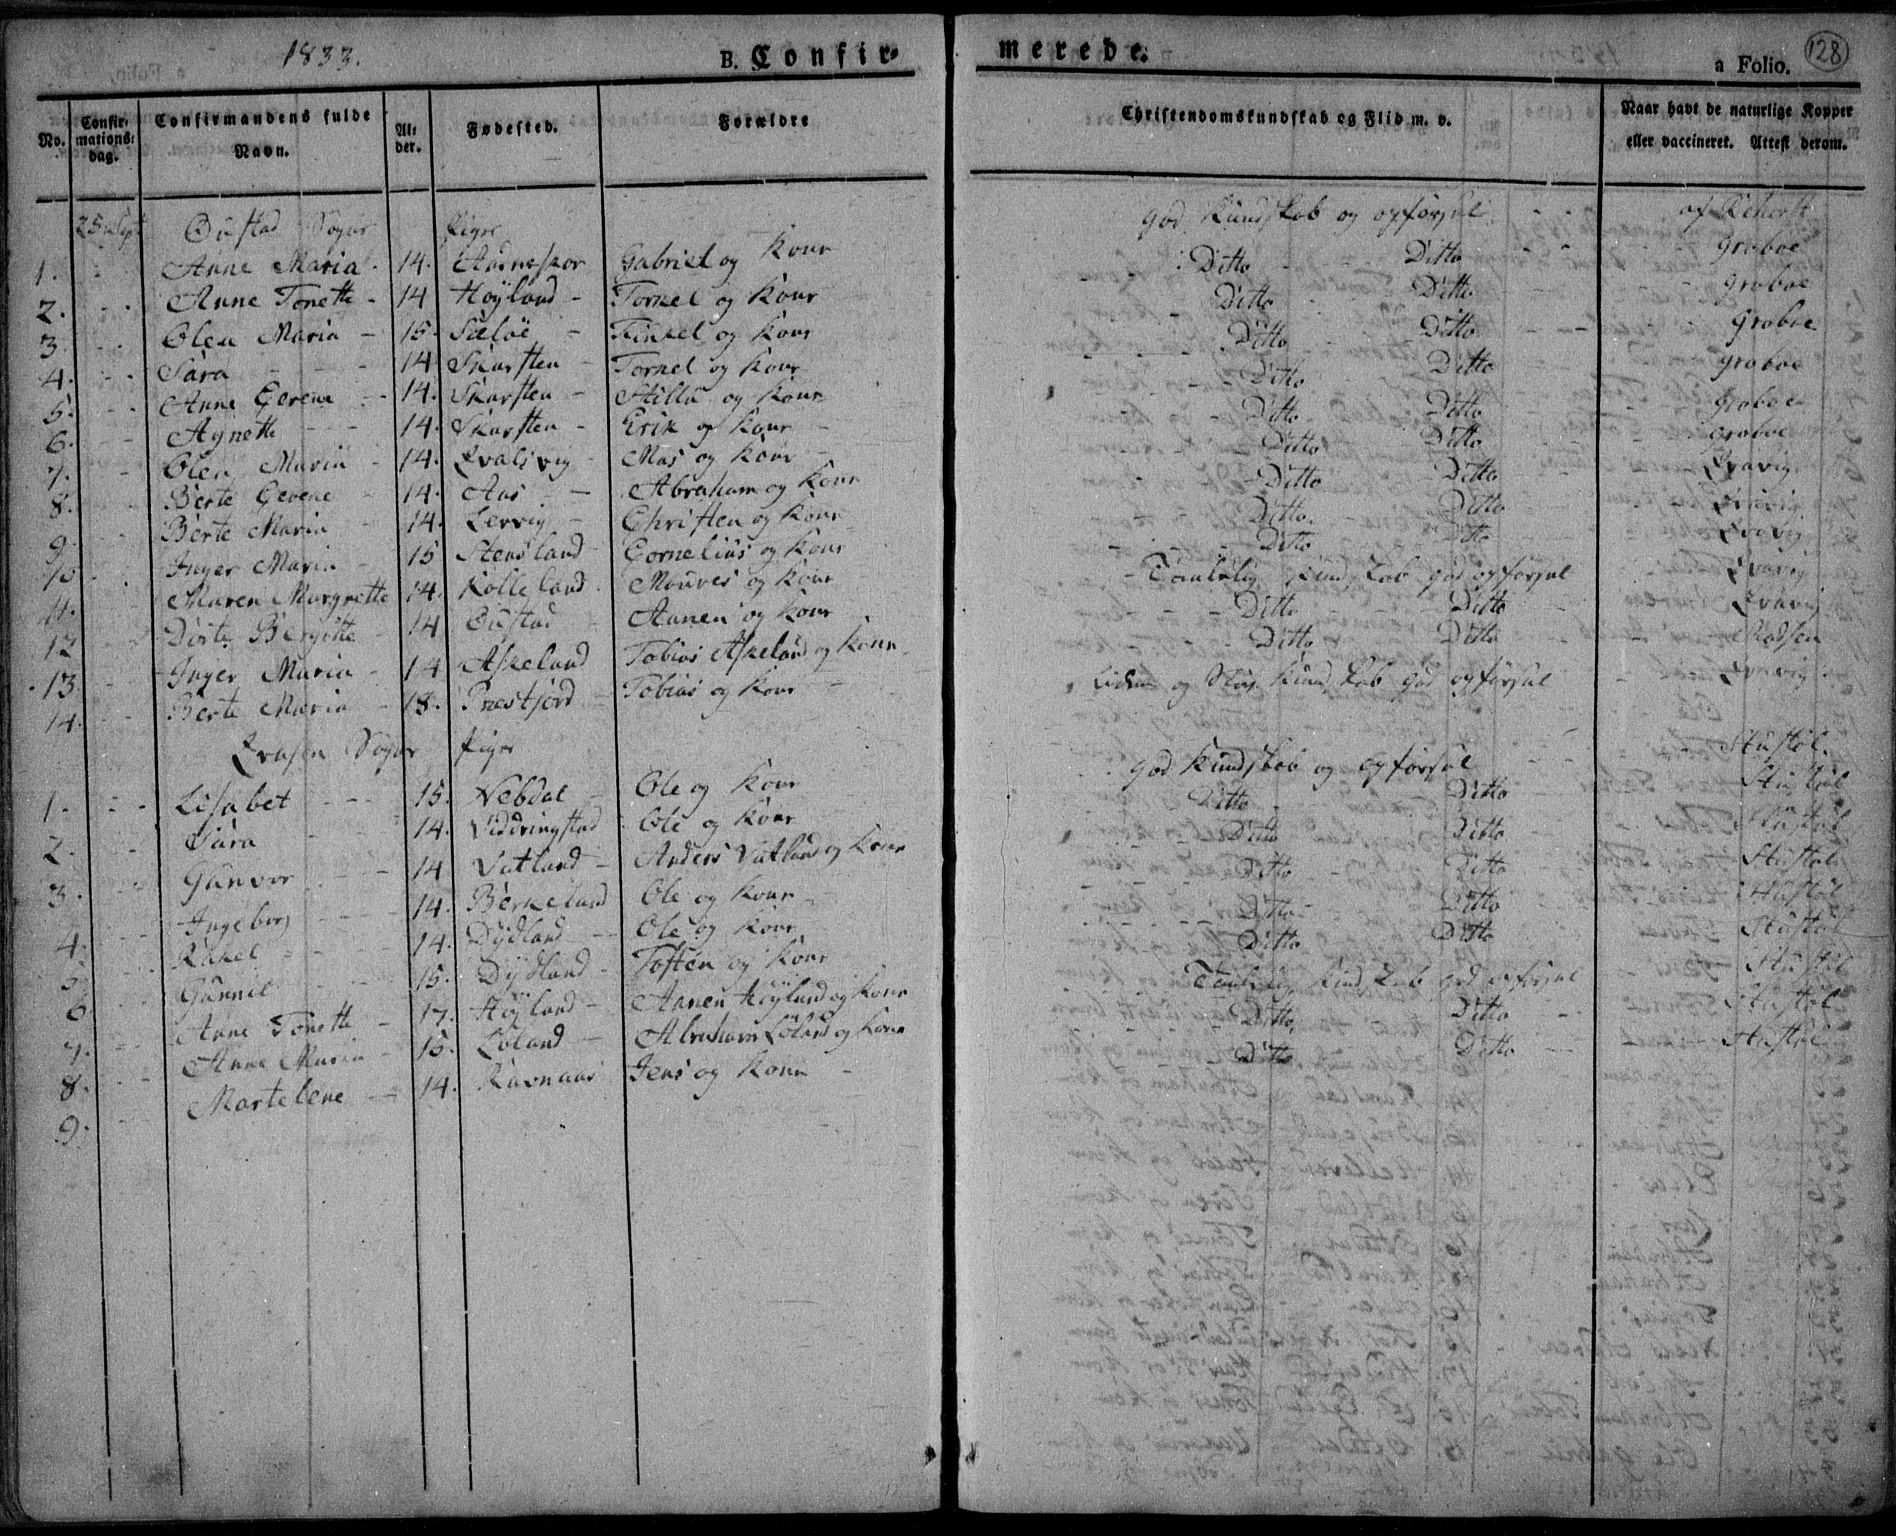 1833.
B. Confir-
merede.
a Folio. 128
No.
Confir-
mations-
dag.
Confirmandens fulde
Navn.
Al-
der.
Fødested.
Forældre
Christendomskundskab og Flid m. v.
Naar havt de naturlige Kopper
eller vaccineret. Attest derom.
25 Sept Bustad Sogns Piger God Kundskab og opførsel af
1. Anne Maria 14. Gabriel og Kone Ditto Ditto Groboe
2. Anne Tonette 14 Høyland Torkel og Kone Ditto Ditto Groboe
3 Olea Maria 15. Sæløe Tinkel og Kone Ditto Ditto Groboe
4. Sara 14 Skarsten Torkel og Kone Ditto Ditto Groboe
5. Anne Gevene 14. Skarsten og Kone Ditto Ditto Groboe
6. Agnette 14. Skarsten Erik og Kone Ditto Ditto Groboe
7. Olea Maria 14. Qvalsvig Mas og Kone Ditto Ditto
8. Berte Gevene 14. Aas Abraham og Kone Ditto Ditto
9. Berte Maria 14. Lervig Christen og Kone Ditto Ditto
10 Inger Maria 15 Stensland Cornelius og Kone Taalelig Kundskab god opførsel
11. Maren Margrette 14. Kolleland og Kone Ditto Ditto
12 Dorte Bergitte 14 Bustad Aanen og Kone Ditto Ditto Madsen
13 Inger Maria 14 Askeland Tobias Askeland og Kone Liden og Kundskab god opførsel
14. Berte Maria 18. Prestjord Tobias og Kone
Sogns Piger
1. Lisabet 15. Nebdal Ole og Kone God Kundskab og opførsel Stustøl
2. Sara 14. Viddringstad Ole og Kone Ditto Ditto Stustøl
3. Gunvor 14 Vatland Anders Vatland og Kone Ditto Ditto Stustøl
4. Ingeborg 14. Berkeland Ole og Kone Ditto Ditto Stustøl
5. Rakel 14. Dydland Ole og Kone Ditto Ditto Stustøl
6 Gunnil 15. Dydland Tosten og Kone Ditto Ditto Stustøl
7. Anne Tonette 17. Høyland Aanen Høyland og Kone Taalelig Kundskab god opførsel Stustøl
8. Anne Maria 15. Løland Abraham Løland og Kone Ditto Ditto Stustøl
9. Martelene 14. Ravnaas Jens og Kone Ditto Ditto Stustøl